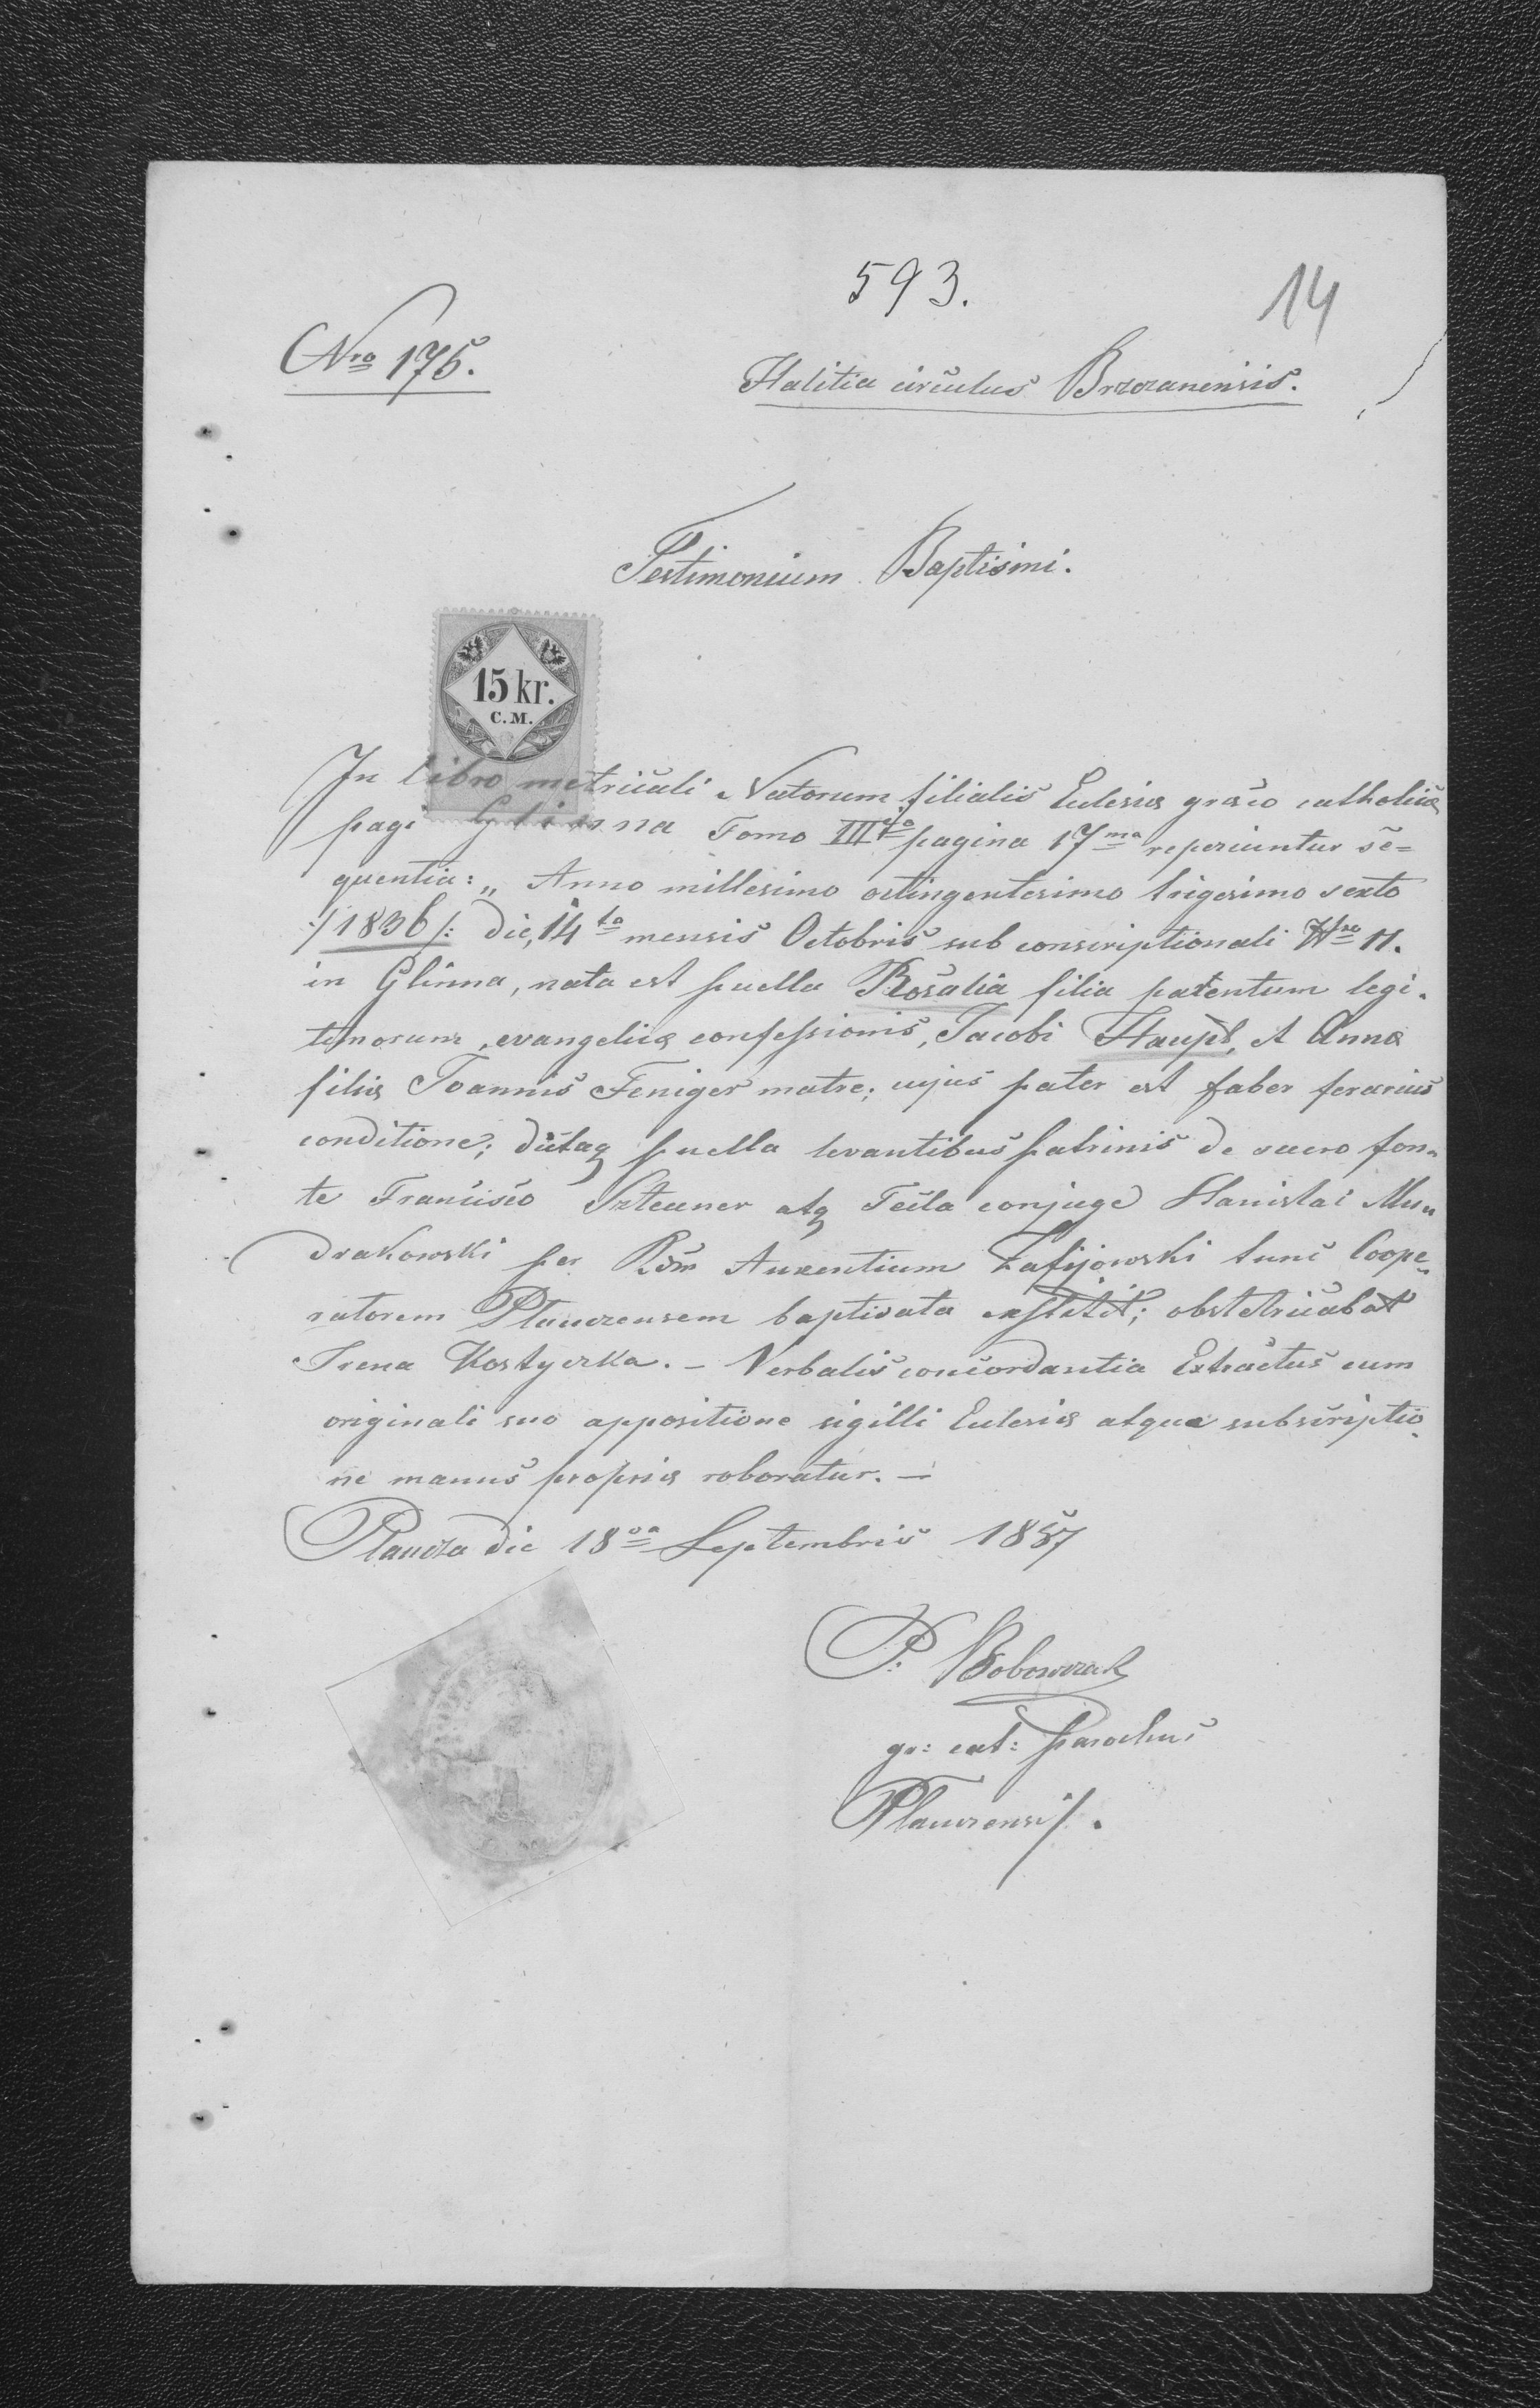 593.
14
Nro 175.
Halitia circulus Brzezanensis.
Testimonium Baptismi.
15 kr.
C.M.
In libro metricali Natorum filialis Eclesiæ græco catholicæ
pagi Glinna Tomo III pagina 17ma reperiuntur se=
quentia: „ Anno millesimo octingentesimo trigesimo sexto
/:1836/: die, 14ta mensis Octobris sub conscriptionali Nro 11.
in Glinna, nata est puella Rosalia filia parentum legi-
timorum, evangelicæ confessionis, Jacobi Haupt, et Annæ
filiæ Joannis Feniger matre; cujus pater est faber ferarius
conditione; dictaq puella levantibus patrinis de sacro fon-
te Francisco Szteuner atq Tecla conjuge Stanislai Mu-
drakowski per Rdm Auxentium Zafijowski tunc Coope-
ratorem Plauczensem baptisata exstitit; obstetricabat
Irena Kostyczka. – Verbalis concordantia Extractus cum
originali suo appositione sigilli Eclesiæ atque subscriptio-
ne manus propriæ roboratur. –
Plaucza die 18va Septembris 1857
P. Bobowczak
gr: cat: Parochus
Plauczensis.